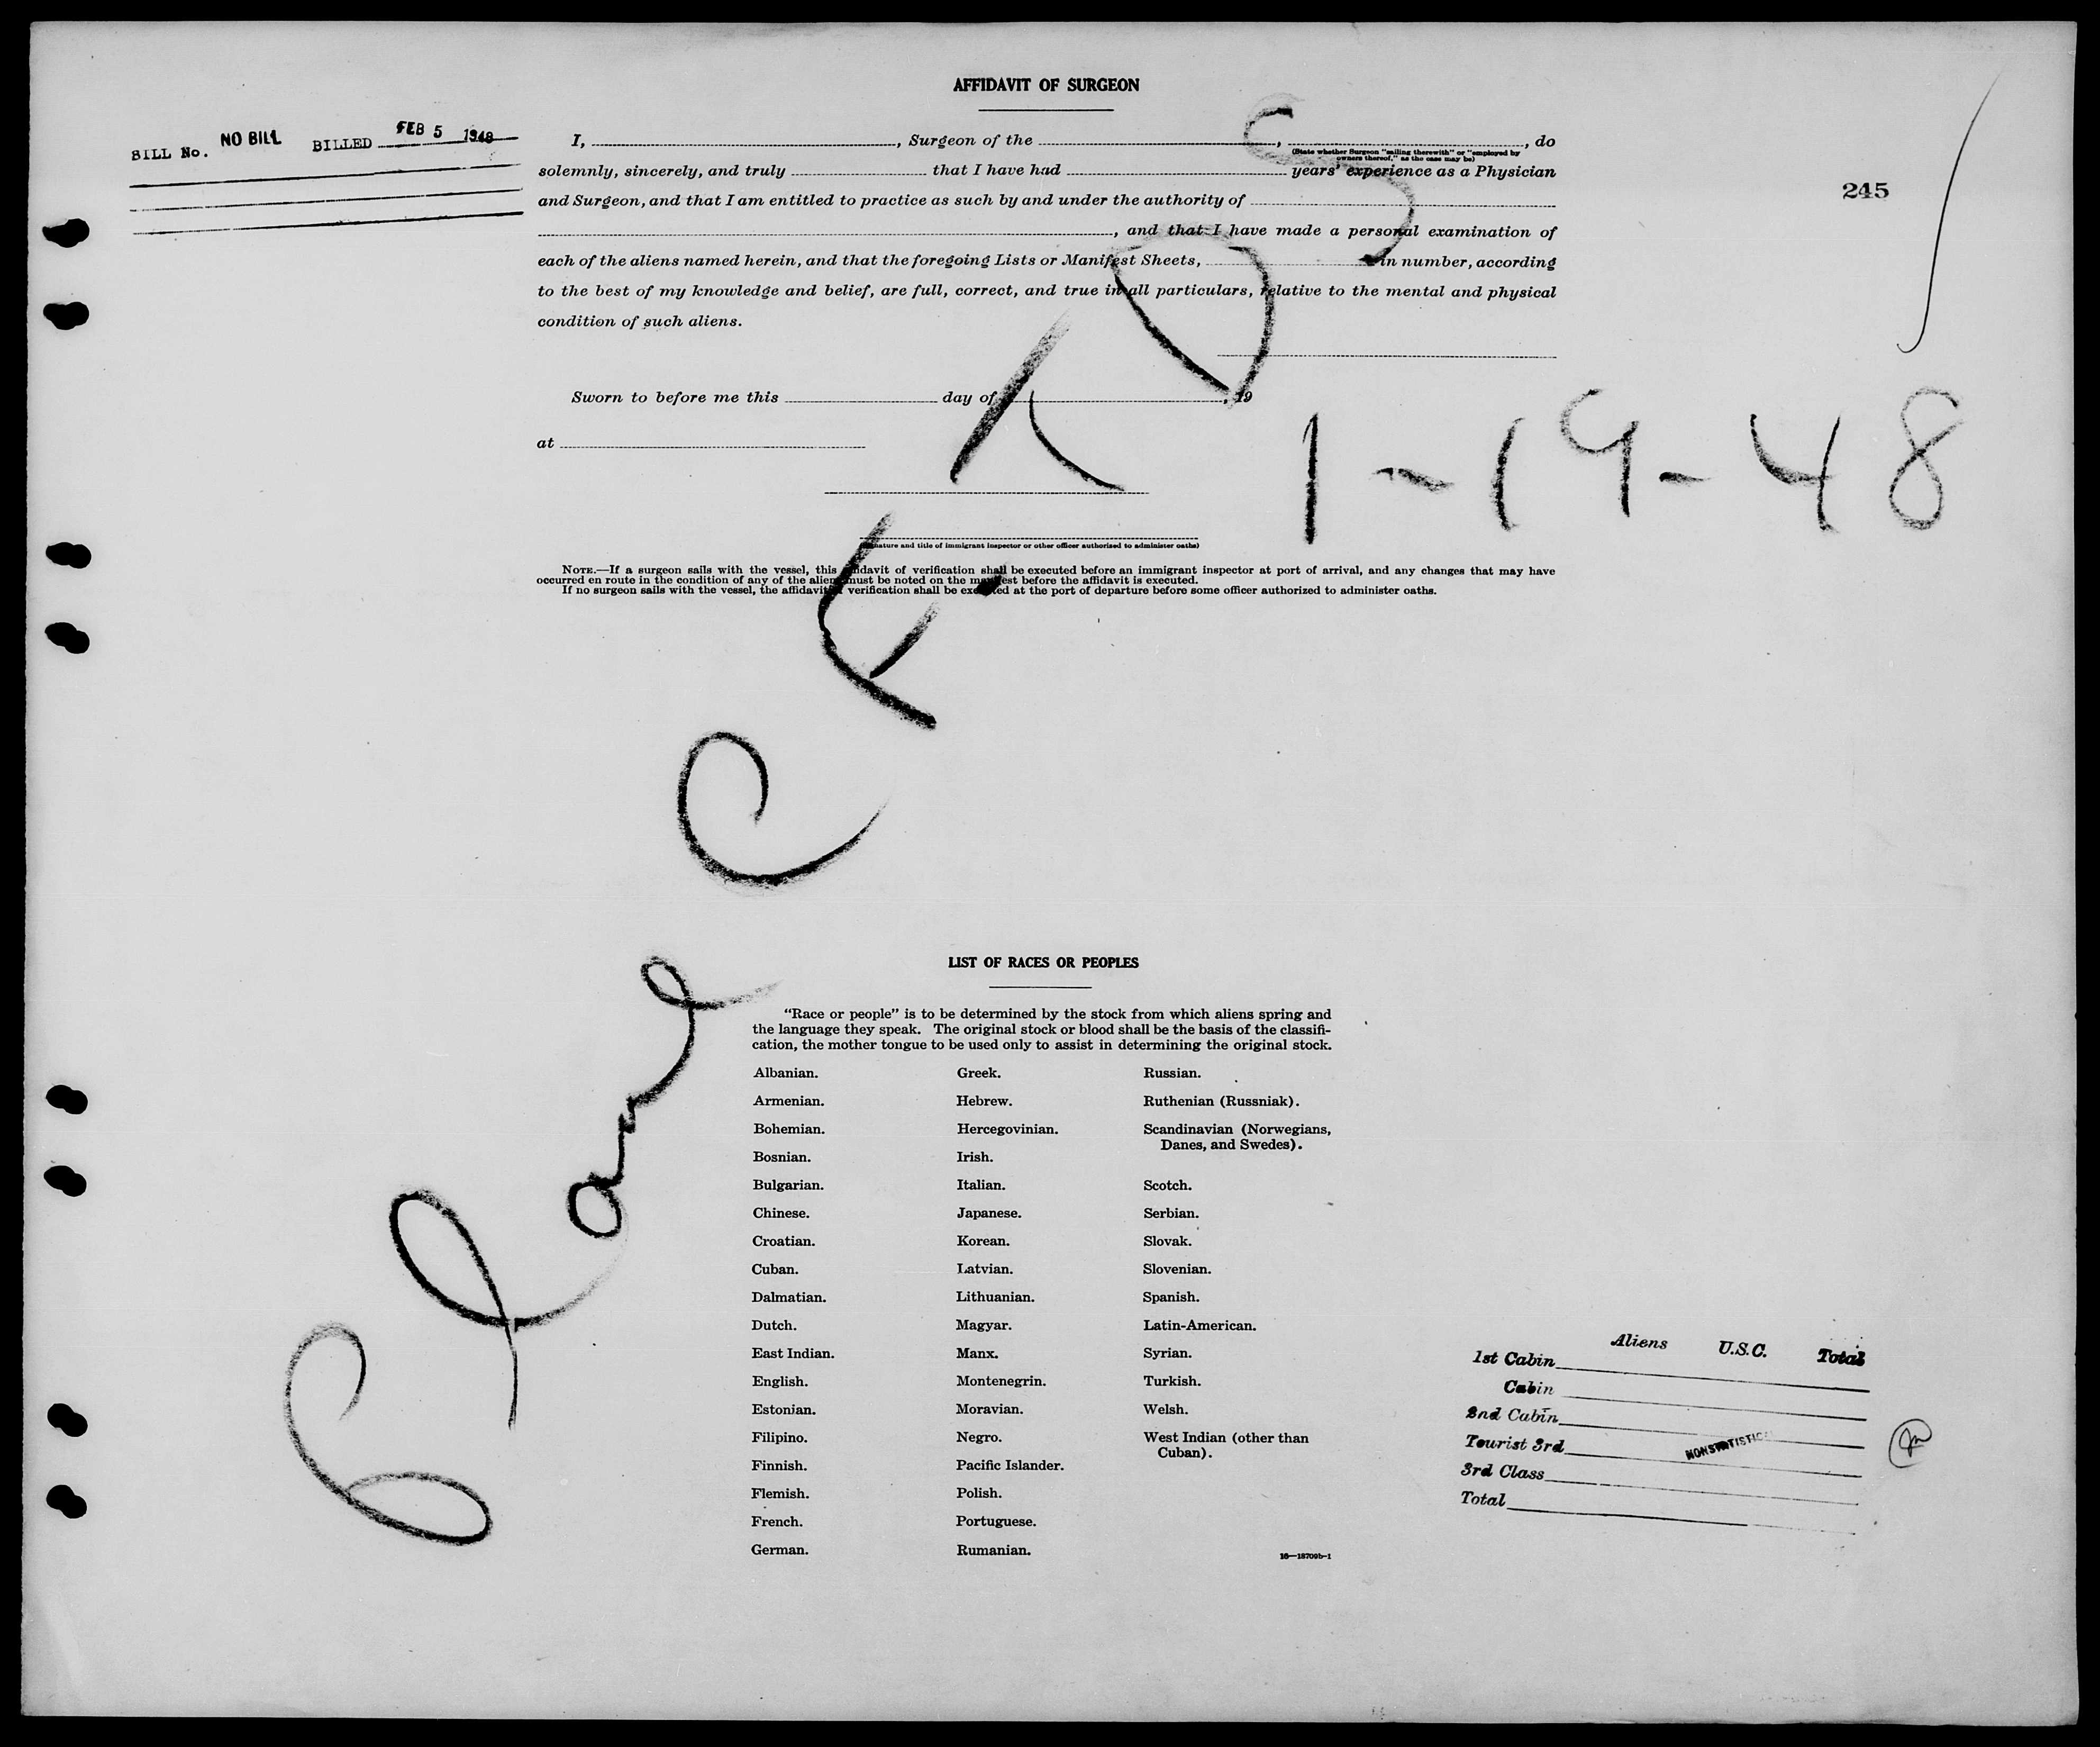 AFFIDAVIT OF SURGEON
BILL No. NO BILL BILLED FEB 5 1948
I, , Surgeon of the , , do
(State whether Surgeon "sailing therewith" or "employed by
owners thereof," as the case may be)
solemnly, sincerely, and truly that I have had years' experience as a Physician
245
and Surgeon, and that I am entitled to practice as such by and under the authority of
, and that I have made a personal examination of
each of the aliens named herein, and that the foregoing Lists or Manifest Sheets, in number, according
to the best of my knowledge and belief, are full, correct, and true in all particulars, relative to the mental and physical
condition of such aliens.
Sworn to before me this day of , 19
at
(Signature and title of immigrant inspector or other officer authorized to administer oaths)
NOTE.—If a surgeon sails with the vessel, this affidavit of verification shall be executed before an immigrant inspector at port of arrival, and any changes that may have
occurred en route in the condition of any of the aliens must be noted on the manifest before the affidavit is executed.
If no surgeon sails with the vessel, the affidavit of verification shall be executed at the port of departure before some officer authorized to administer oaths.
Plane CF-TDS
1-19-48
LIST OF RACES OR PEOPLES
"Race or people" is to be determined by the stock from which aliens spring and
the language they speak. The original stock or blood shall be the basis of the classifi-
cation, the mother tongue to be used only to assist in determining the original stock.
Albanian.
Armenian.
Bohemian.
Bosnian.
Bulgarian.
Chinese.
Croatian.
Cuban.
Dalmatian.
Dutch.
East Indian.
English.
Estonian.
Filipino.
Finnish.
Flemish.
French.
German.
Greek.
Hebrew.
Hercegovinian.
Irish.
Italian.
Japanese.
Korean.
Latvian.
Lithuanian.
Magyar.
Manx.
Montenegrin.
Moravian.
Negro.
Pacific Islander.
Polish.
Portuguese.
Rumanian.
Russian.
Ruthenian (Russniak).
Scandinavian (Norwegians,
Danes, and Swedes).
Scotch.
Serbian.
Slovak.
Slovenian.
Spanish.
Latin-American.
Syrian.
Turkish.
Welsh.
West Indian (other than
Cuban).
16—18709b-1
Aliens U.S.C. Total
1st Cabin
Cabin
2nd Cabin
Tourist 3rd
NONSTATISTIC
3rd Class
Total